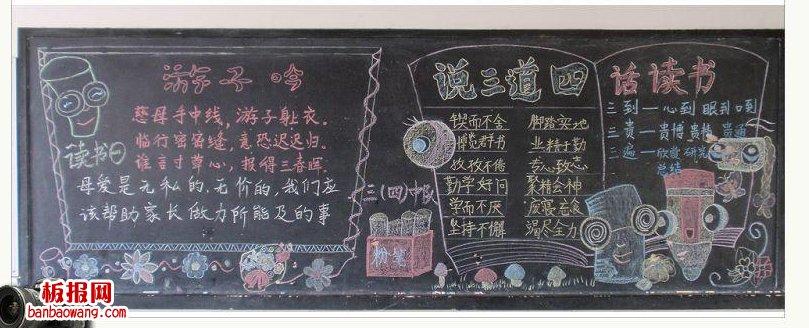 游子吟
慈母手中线，游子身上衣。
临行密密缝，意恐迟迟归。
谁言寸草心，报得三春晖。
母爱是无私的、无价的，我们应
该帮助家长做力所能及的事
读书
三(四)中队
粉笔
说三道四
锲而不舍 脚踏实地
博览群书 业精于勤
孜孜不倦 专心致志
勤学好问 聚精会神
学而不厌 废寝忘食
坚持不懈 竭尽全力
话读书
三到—心到 眼到 口到
三贵—贵博 贵精 贵通
三遍—欣赏 研究
总结
板报网
banbaowang.com